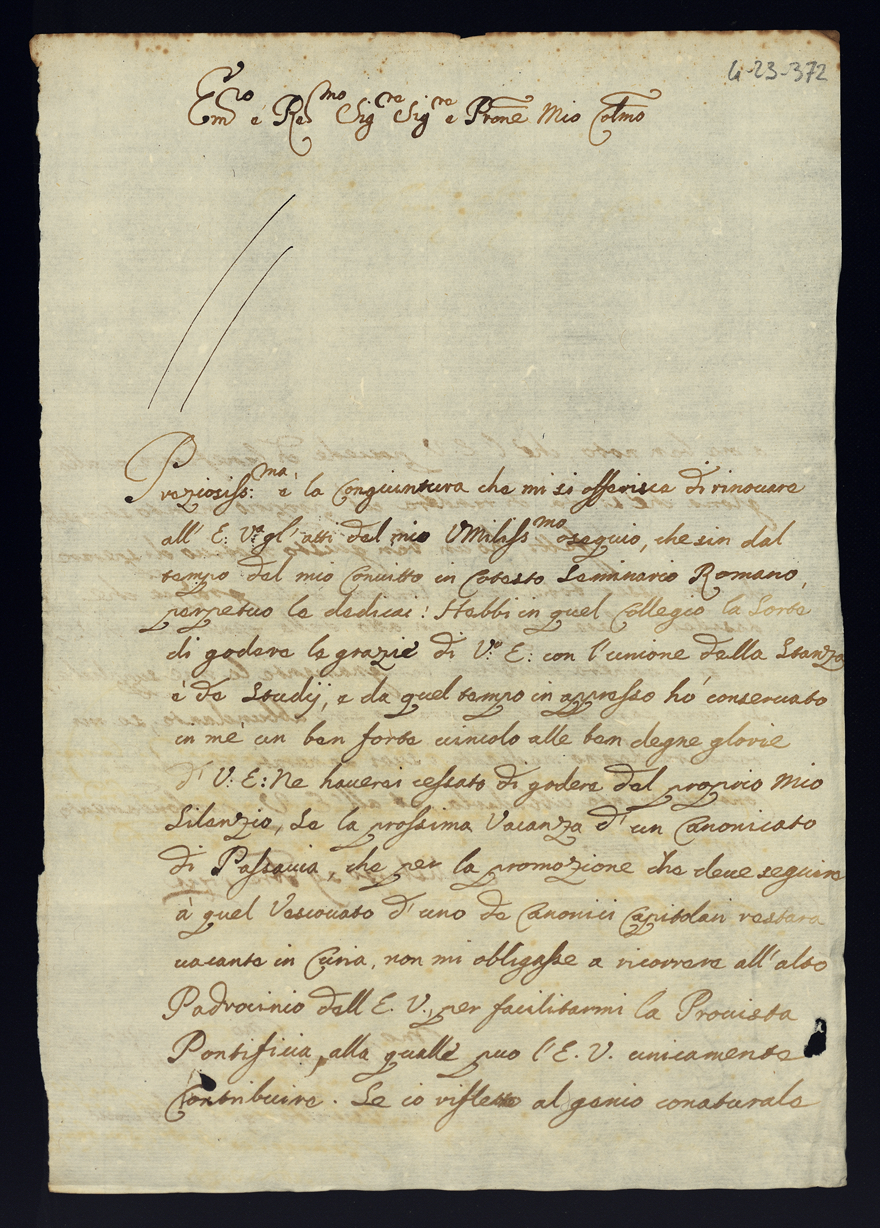 4-23-372
Em.ro e Re.mo Sig.re Sig.re e Prone Mio Colmo
Preziosiss:ma è la Congiuntura che mi si offerisce di rinovare
all' E: V.ra gl' atti del mio Umiliss.mo osequio, che sin dal
tempo del mio Convitto in Cotesto Seminario Romano,
perpetuo le dedicai: Hebbi in quel Collegio la Sorte
di godere le grazie di V.a E: con l'unione della Stanza
e de Studij, e da quel tempo in appresso hò conservato
in mè un ben forte vincolo alle ben degne glorie
d' V: E: Ne haverei cessato di godere del proprio Mio
Silenzio, Se la prossima Vacanza d' un Canonicato
di Passavia, che per la promozione che deve seguire
à quel Vescovato d' uno de Canonici Capitolari restarà
vacante in Curia, non mi obligasse a ricorrere all' alto
Padrocinio dell E. V., per facilitarmi la Provista
Pontificia, alla quale può l' E. V. unicamente
Contribuire. Se io rifletto al genio conaturale